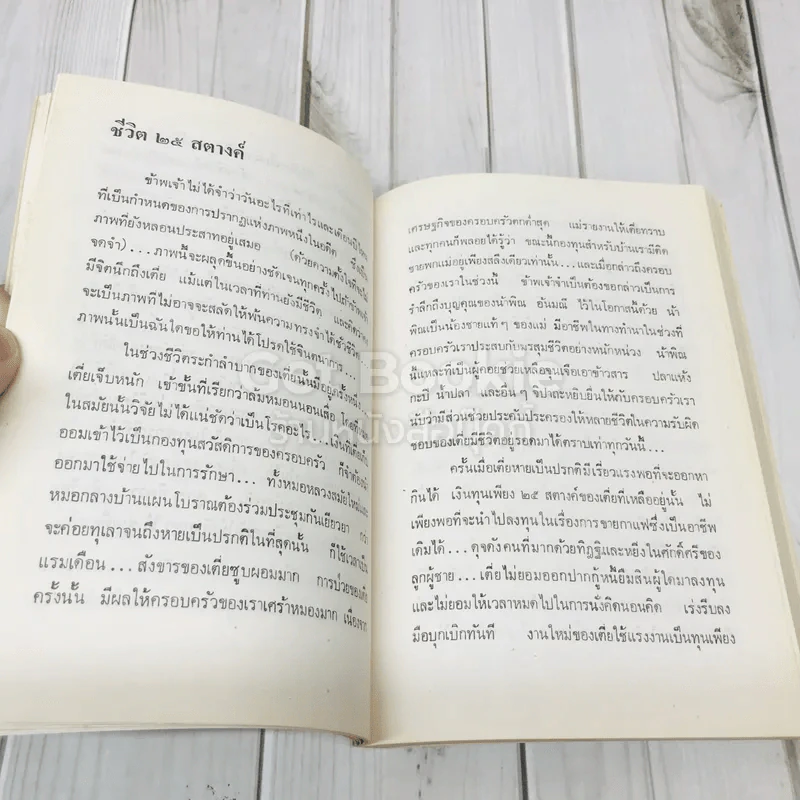 ชีวิต ๒๕ สตางค์
ข้าพเจ้าไม่ได้จำว่าวันอะไรที่เท่าไรและเดือนปี
ที่เป็นกำหนดของการปรากฏแห่งภาพหนึ่งในอดีต
ภาพที่ยังหลอนประสาทอยู่เสมอ (ด้วยความตั้งใจที่จะ
จดจำ)...ภาพนี้จะผลุดขึ้นอย่างชัดเจนทุกครั้งไป
มีจิตนึกถึงเตี่ย แม้แต่ในเวลาที่ท่านยังมีชีวิต และคิดว่า
จะเป็นภาพที่ไม่อาจจะสลัดให้พ้นความทรงจำได้ชั่วชีวิต
ภาพนั้นเป็นฉันใดขอให้ท่านได้โปรดใช้จินตนาการ...
ในช่วงชีวิตระกำลำบากของเตี่ยนั้นมีอยู่ครั้งหนึ่ง
เตี่ยเจ็บหนัก เข้าขั้นที่เรียกว่าล้มหมอนนอนเสื่อ
ในสมัยนั้นวิจัยไม่ได้แน่ชัดว่าเป็นโรคอะไร...เงินที่เตี่ย
ออมเข้าไว้เป็นกองทุนสวัสดิการของครอบครัว ก็จำต้อง
ออกมาใช้จ่ายไปในการรักษา... ทั้งหมอหลวงสมัยใหม่
หมอกลางบ้านแผนโบราณต้องร่วมประชุมกันเยียวยา กว่า
จะค่อยทุเลาจนถึงหายเป็นปรกติในที่สุดนั้น ก็ใช้เวลา
แรมเดือน...สังขารของเตี่ยซูบผอมมาก การป่วยของเตี่ย
ครั้งนั้น มีผลให้ครอบครัวของเราเศร้าหมองมาก เนื่องจาก
เศรษฐกิจของครอบครัวตกต่ำสุด แม่รายงานให้เตี่ยทราบ
และทุกคนก็พลอยได้รู้ว่า ขณะนี้กองทุนสำหรับบ้านเรามีติด
ชายพกแม่อยู่เพียงสลึงเดียวเท่านั้น...และเมื่อกล่าวถึงครอบ
ครัวของเราในช่วงนี้ ข้าพเจ้าจำเป็นต้องขอกล่าวเป็นการ
รำลึกถึงบุญคุณของน้าพิณ อันมณี ไว้ในโอกาสนี้ด้วย น้า
พิณเป็นน้องชายแท้ๆ ของแม่ มีอาชีพในทางทำนาในช่วงที่
ครอบครัวเราประสบกับมรสุมชีวิตอย่างหนักหน่วง น้าพิณ
นี้แหละที่เป็นผู้คอยช่วยเหลือจุนเจือเอาข้าวสาร ปลาแห้ง
กะปิ น้ำปลา และอื่นๆ จิปาถะหยิบยื่นให้กับครอบครัวเรา
นับว่ามีส่วนช่วยประคับประคองให้หลายชีวิตในความรับผิด
ชอบของเตี่ยมีชีวิตอยู่รอดมาได้ตราบเท่าทุกวันนี้...
ครั้นเมื่อเตี่ยหายเป็นปรกติมีเรี่ยวแรงพอที่จะออกหา
กินได้ เงินทุนเพียง ๒๕ สตางค์ของเตี่ยที่เหลืออยู่นั้น ไม่
เพียงพอที่จะนำไปลงทุนในเรื่องการขายกาแฟซึ่งเป็นอาชีพ
เดิมได้...ดุจดังคนที่มากด้วยทิฏฐิและหยิ่งในศักดิ์ศรีของ
ลูกผู้ชาย...เตี่ยไม่ยอมออกปากกู้หนี้ยืมสินผู้ใดมาลงทุน
และไม่ยอมให้เวลาหมดไปในการนั่งคิดนอนคิด เร่งรีบลง
มือบุกเบิกทันที งานใหม่ของเตี่ยใช้แรงงานเป็นทุนเพียง
Got Bookie
ร้านหนังสือบุ๊คกี้